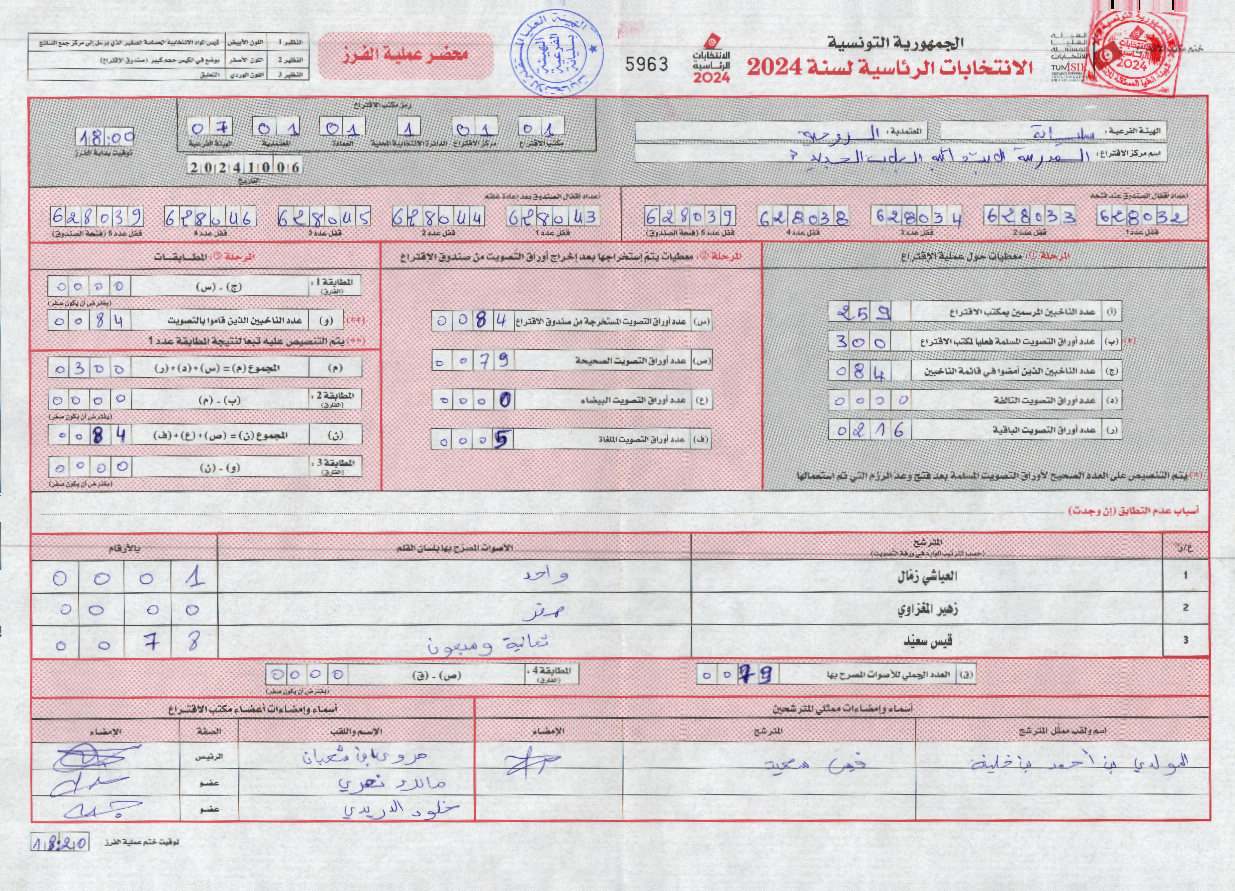 الجمهورية التونسية
الانتخابات الرئاسية لسنة 2024
الانتخابات الرئاسية 2024
5963
محضر عملية الفرز
النظير 1 اللون الأبيض
النظير 2 اللون الأصفر
النظير 3 اللون الوردي التعليق
الهيئة الفرعية: سليانة
المعتمدية: الروحية
اسم مركز الاقتراع: المدرسة
رمز مكتب الاقتراع
07 01 01 1 01 01
الهيئة الفرعية المعتمدية العمادة الدائرة الانتخابية المحلية مركز الاقتراع مكتب الاقتراع
18:00
توقيت بداية الفرز
20241006
التاريخ
أعداد أقفال الصندوق عند فتحه
628032 628033 628034 628038 628039
قفل عدد 1 قفل عدد 2 قفل عدد 3 قفل عدد 4 قفل عدد 5 (فتحة الصندوق)
أعداد أقفال الصندوق بعد إعادة غلقه
628043 628044 628045 628046 628039
قفل عدد 1 قفل عدد 2 قفل عدد 3 قفل عدد 4 قفل عدد 5 (فتحة الصندوق)
المرحلة ①: معطيات حول عملية الاقتراع
(أ) عدد الناخبين المرسمين بمكتب الاقتراع 259
(*) (ب) عدد أوراق التصويت المسلمة فعليا لمكتب الاقتراع 300
(ج) عدد الناخبين الذين أمضوا في قائمة الناخبين 084
(د) عدد أوراق التصويت التالفة 0000
(ر) عدد أوراق التصويت الباقية 0216
(*) يتم التنصيص على العدد الصحيح لأوراق التصويت المسلمة بعد فتح وعد الرزم التي تم استعمالها
المرحلة ②: معطيات يتم إستخراجها بعد إخراج أوراق التصويت من صندوق الاقتراع
(س) عدد أوراق التصويت المستخرجة من صندوق الاقتراع 0084
(ص) عدد أوراق التصويت الصحيحة 0079
(ع) عدد أوراق التصويت البيضاء 0000
(ف) عدد أوراق التصويت الملغاة 0005
المرحلة ③: المطابقات
المطابقة 1: (الفارق) (ج) - (س) 0000
(يفترض أن يكون صفر)
(**) (و) عدد الناخبين الذين قاموا بالتصويت 0084
(**) يتم التنصيص عليه تبعا لنتيجة المطابقة عدد 1
(م) المجموع (م) = (س) + (د) + (ر) 0300
المطابقة 2: (الفارق) (ب) - (م) 0000
(يفترض أن يكون صفر)
(ن) المجموع (ن) = (ص) + (ع) + (ف) 0084
المطابقة 3: (الفارق) (و) - (ن) 0000
(يفترض أن يكون صفر)
أسباب عدم التطابق (إن وجدت)
ع/ر المترشح (حسب الترتيب الوارد في ورقة التصويت) الأصوات المصرح بها بلسان القلم بالأرقام
1 العياشي زمّال واحد 0001
2 زهير المغزاوي صفر 0000
3 قيس سعيّد ثمانية وسبعون 0078
(ق) العدد الجملي للأصوات المصرح بها 0079
المطابقة 4: (الفارق) (ص) - (ق) 0000
(يفترض أن يكون صفر)
أسماء وإمضاءات ممثلي المترشحين
اسم ولقب ممثل المترشح المترشح الإمضاء
المولدي بن أحمد بن خليفة قيس سعيد
أسماء وإمضاءات أعضاء مكتب الاقتراع
الإسم واللقب الصفة الإمضاء
الرئيس
عضو
خلود الدريدي عضو
توقيت ختم عملية الفرز 18:20